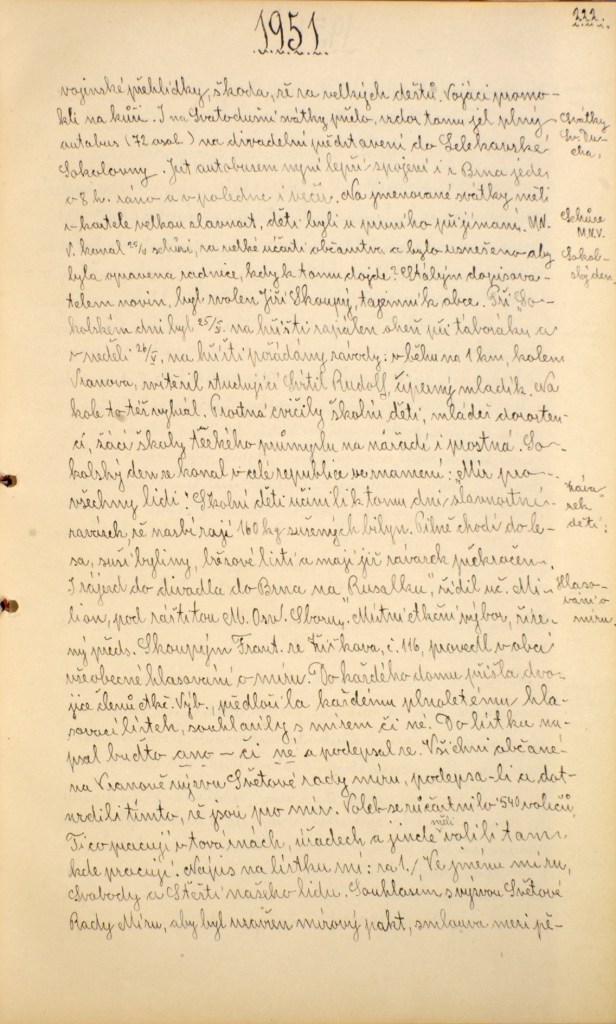 1951
222.
vojenské přehlídky, škoda, že za velkých dešťů. Vojáci promo-
kli na kůži. I na Svatodušní svátky pršelo, vzdor tomu jel plný
Svátky
Sv. Du-
cha,
autobus (72 osob) na divadelní představení do Lelekovské
Sokolovny. Jet autobusem nyní lepší spojení i z Brna jede
v 8 h. ráno a v poledne i večer. Na jmenované svátky měli
v kostele velkou slavnost, děti byli u prvního přijímání. M.N.
Schůze
M.N.V.
V. konal schůzi, za velké účasti občanstva a bylo usneseno aby
Sokol-
ský den.
byla opravena radnice, kdy k tomu dojde? Stálým dopisova-
telem novin, byl zvolen Jiří Skoupý, tajemník obce. Při So-
kolském dni byl 25/V. na hřišti zapálen oheň při táboráku a
v neděli 26/V. na hřišti pořádány závody: v běhu na 1 km, kolem
Vranova, zvítězil studující Svítil Rudolf, čiperný mladík. Na
kole to též vyhrál. Prostná cvičily školní děti, mládež dorosten-
ci, žáci školy těžkého průmyslu na nářadí i prostná. So-
kolský den se konal v celé republice ve znamení: „Mír pro
všechny lidi! Školní děti učinili k tomu dni slavnostní
Záva-
zek
dětí:
závazek, že nasbírají 160 kg sušených bylin. Pilně chodí do le-
sa, suší byliny, březové listí a mají již závazek překročen.
I zájezd do divadla do Brna na „Rusalku“, řídil uč. Mi-
Hlaso-
vání o
míru.
lion, pod záštitou M. Osv. Sboru. Místní akční výbor, říze-
ný předs. Skoupým Frant. ze Žižkova, č. 116, provedl v obci
všeobecné hlasování o míru. Do každého domu přišla dvo-
jice členů Akč. Výb., předložila každému plnoletému hla-
sovací lístek, souhlasily s mírem či né. Do lístku na-
psal buďto ano – či né a podepsal se. Všichni občané
na Vranově výzvu Světové rady míru, podepsali a dot-
vrdili tímto, že jsou pro mír. Voleb se zúčastnilo 540 voličů.
Ti co pracují v továrnách, úřadech a jinde měli volili tam
kde pracují. Nápis na lístku zní: za 1./ Ve jménu míru,
Svobody a Štěstí našeho lidu. Souhlasím s výzvou Světové
Rady Míru, aby byl uzavřen mírový pakt, smlouva mezi pě-